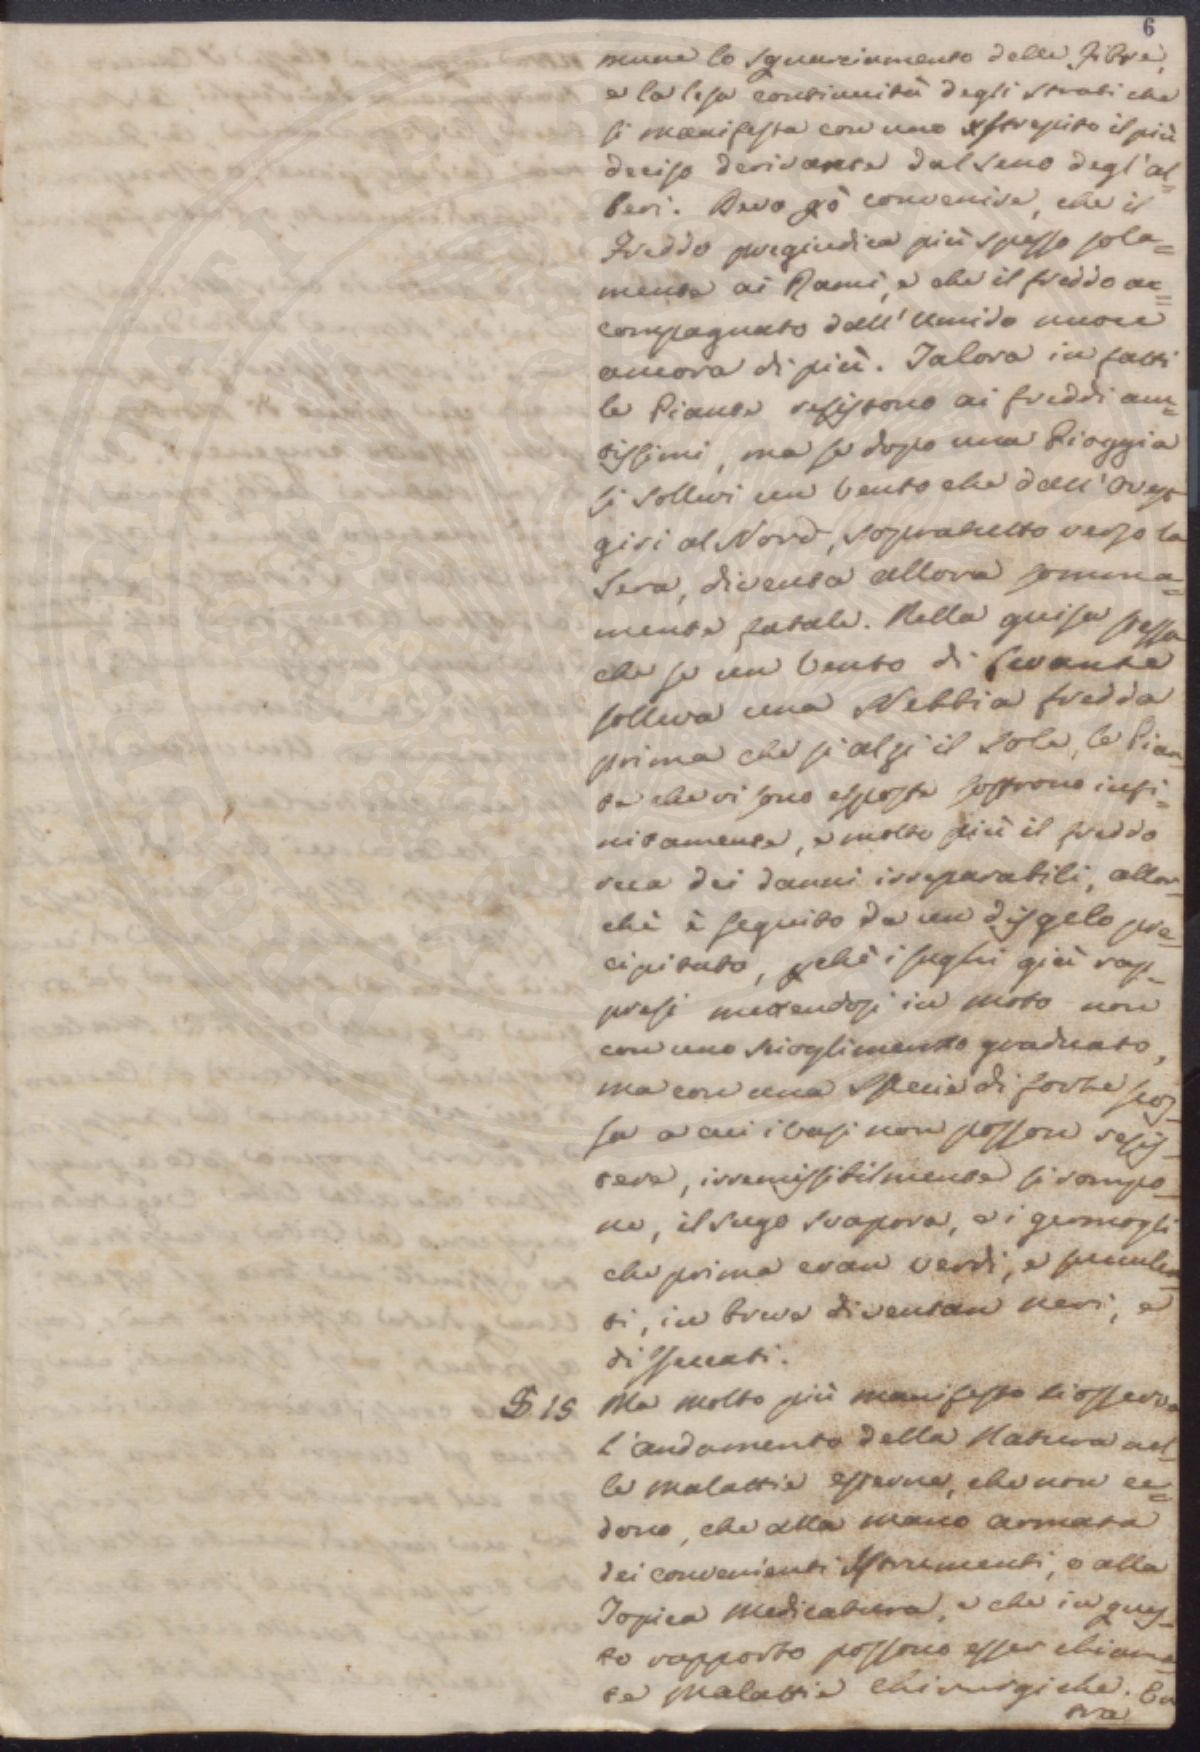 6
mune lo squarciamento delle Fibre,
e la lesa continuità degli strati che
si manifesta con uno strepito il più
deciso derivante dal seno degl'al=
beri. Devo però convenire, che il
Freddo pregiudica più spesso sola=
mente ai Rami, e che il freddo ac=
compagnato dall'Umido nuoce
ancora di più. Talora in fatti
le Piante resistono ai freddi am=
tissimi, ma se dopo una Pioggia
si sollevi un Vento che dall'Ovest
giri al Nord, sopratutto verso la
Sera, diventa allora somma=
mente fatale. Nella guisa stessa
che se un Vento di Levante
solleva una Nebbia fredda
prima che si alzi il Sole, le Pian=
te che vi sono esposte soffrono infi=
nitamente, e molto più il freddo
reca dei danni irreparabili, allor=
chè è seguito da un disgelo pre=
cipitato, pchè i sughi già rap=
presi mettendosi in moto non
con uno scioglimento graduato,
ma con una specie di forte scos=
sa a cui i Vasi non posson resis=
tere, irremissibilmente si rompo=
no, il sugo svapora, e i germogli
che prima eran verdi, e succulen
ti, in breve diventan neri, e
disseccati.
§ 15 Ma molto più manifesto si osserva
l'andamento della Natura nel=
le malattie esterne, che non ce=
dono, che alla mano armata
dei convenienti Istrumenti, o alla
Topica Medicatura, e che in ques=
to rapporto possono esser chiama
te Malattie Chirurgiche. En
tra